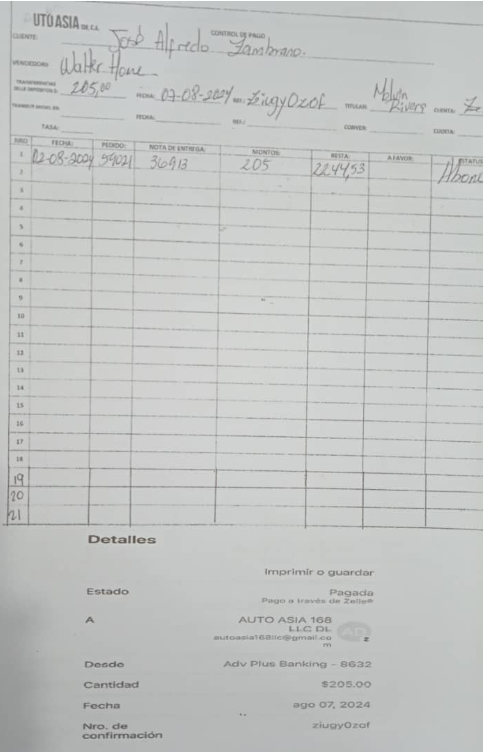 UTO ASIA DE, C.A.
CONTROL DE PAGO
CLIENTE: José Alfredo Zambrano.
VENDEDOR: Walter Hone
205,00 FECHA: 07-08-2024 REF.: ziugy0zof TITULAR: Melvin Rivers CUENTA: Ze
FECHA: REF.: CUENTA:
TASA:
NRO FECHA: PEDIDO: NOTA DE ENTREGA: MONTOS: RESTA: A FAVOR: ESTATUS
1 02-08-2024 59021 36913 205 2244,53 Abono
2
3
4
5
6
7
8
9
10
11
12
13
14
15
16
17
18
19
20
21
Detalles
Imprimir o guardar
Estado Pagada
Pago a través de Zelle®
A AUTO ASIA 168
LLC DL
autoasia168llc@gmail.co
m
Desde Adv Plus Banking - 8632
Cantidad $205.00
Fecha ago 07, 2024
Nro. de confirmación ziugy0zof